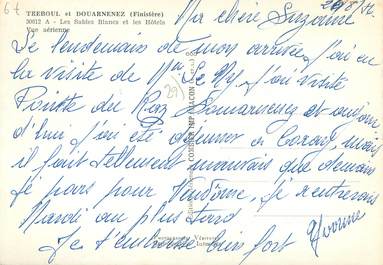 67
TREBOUL et DOUARNENEZ (Finistère)
30612 A - Les Sables Blancs et les Hôtels
Vue aérienne
Ma chère Suzanne
Le lendemain de mon arrivée j'ai eu
la visite de Mr Le Ny, j'ai visité
Pointe du Raz Douarnenez et aujour
d'hui j'ai été déjeuner à mais
il fait tellement mauvais que demain
je pars pour Vendôme, je rentrerais
Mardi au plus tard
Je t'embrasse bien fort Yvonne
COMBIER IMP. MACON